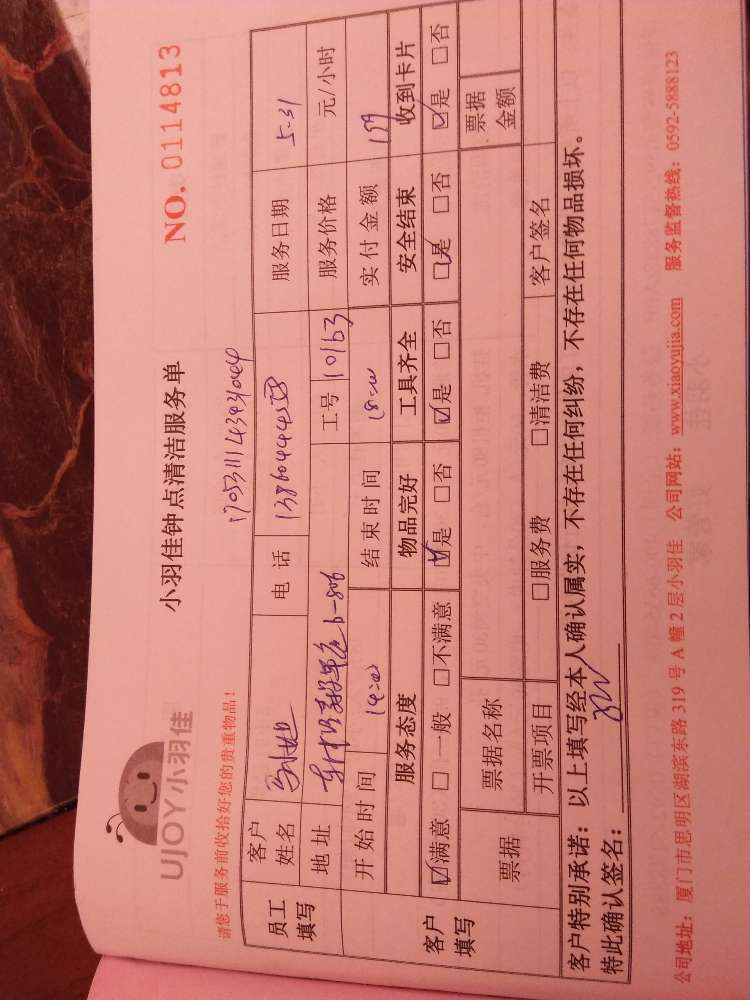 UJOY小羽佳
小羽佳钟点清洁服务单
NO. 0114813
请您于服务前收拾好您的贵重物品！
1705311143431044
员工填写 客户姓名 电话 服务日期 5-31
地址 工号 10163 服务价格 元/小时
客户填写 开始时间 14:00 结束时间 18:00 实付金额 199
服务态度 物品完好 工具齐全 安全结束 收到卡片
☑满意 □一般 □不满意 ☑是 □否 ☑是 □否 ☑是 □否 ☑是 □否
票据 票据名称 票据金额
开票项目 □服务费 □清洁费 客户签名
客户特别承诺：以上填写经本人确认属实，不存在任何纠纷，不存在任何物品损坏。
特此确认签名：
公司地址：厦门市思明区湖滨东路 319 号 A 幢 2 层小羽佳 公司网站：www.xiaoyujia.com 服务监督热线：0592-5888123